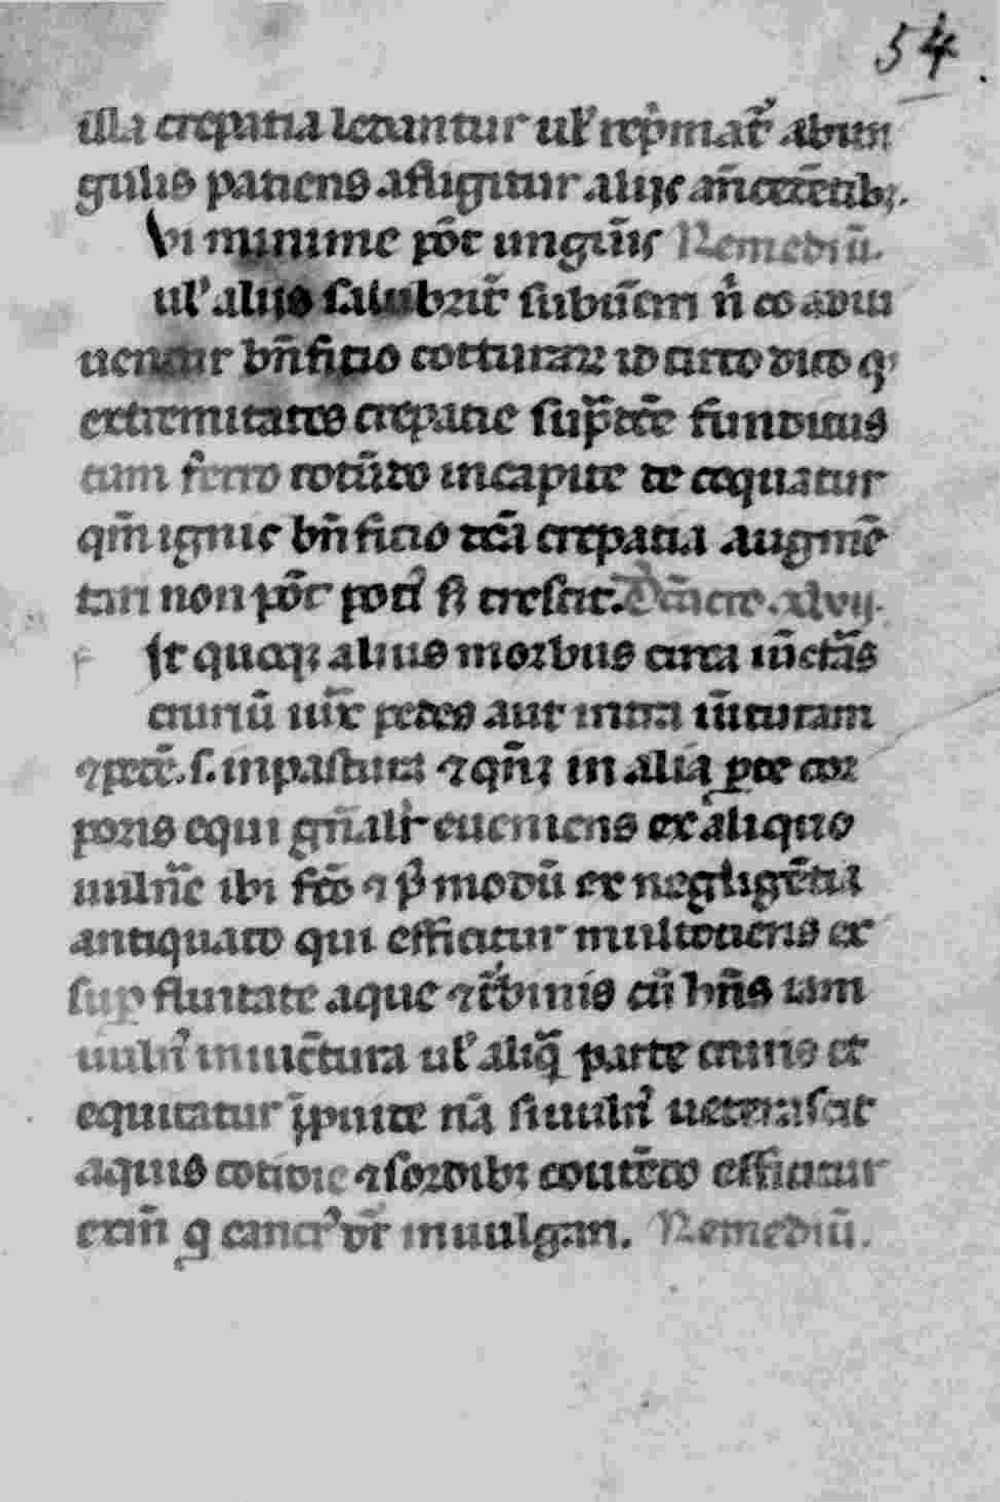 54.
illa crepatia ledantur ul' rep̄mat᷑ ab un
gulis patiens afligitur alijs an̄cedētibꝫ.
Vi minime pōt ungūīs Remediū.
ul' alijs salubrit᷑ subūēm n̄ eo adiu
uentur bn̄ficio cotturarꝫ id circo dico ꝙ
extremitates crepatie sup̄dc̄e funditus
cum ferro rotūdo in capite decoquatur
qm̄ ignis bn̄ficio dc̄ā crepatia augmē
tari non pōt poti᷑ s; crescit. D̄ cācre. xlvij.
St quoqꝫ alius morbus circa iūctas
cruriū iux̄ pedes aut intra iūcturam
⁊ pedē. s. in pastura ⁊ qn̄qꝫ in alia ꝑte cor
poris equi gn̄alit᷑ eueniens ex aliquo
uuln̄e ibi fc̄o ⁊ p᷑ modū ex negligētia
antiquato qui efficitur multotiens ex
suꝑfluitate aque ⁊ t᷑binis cū hn̄s iam
uuln᷑ in iuc̄tura ul' aliq̄ parte cruris et
equitatur īpuite nā si uuln᷑ ueterascit
aquis cotidie ⁊ sordibꝫ coutēdo efficitur
exīn q cancr᷑ dr̄ in uulgari. Remediū.